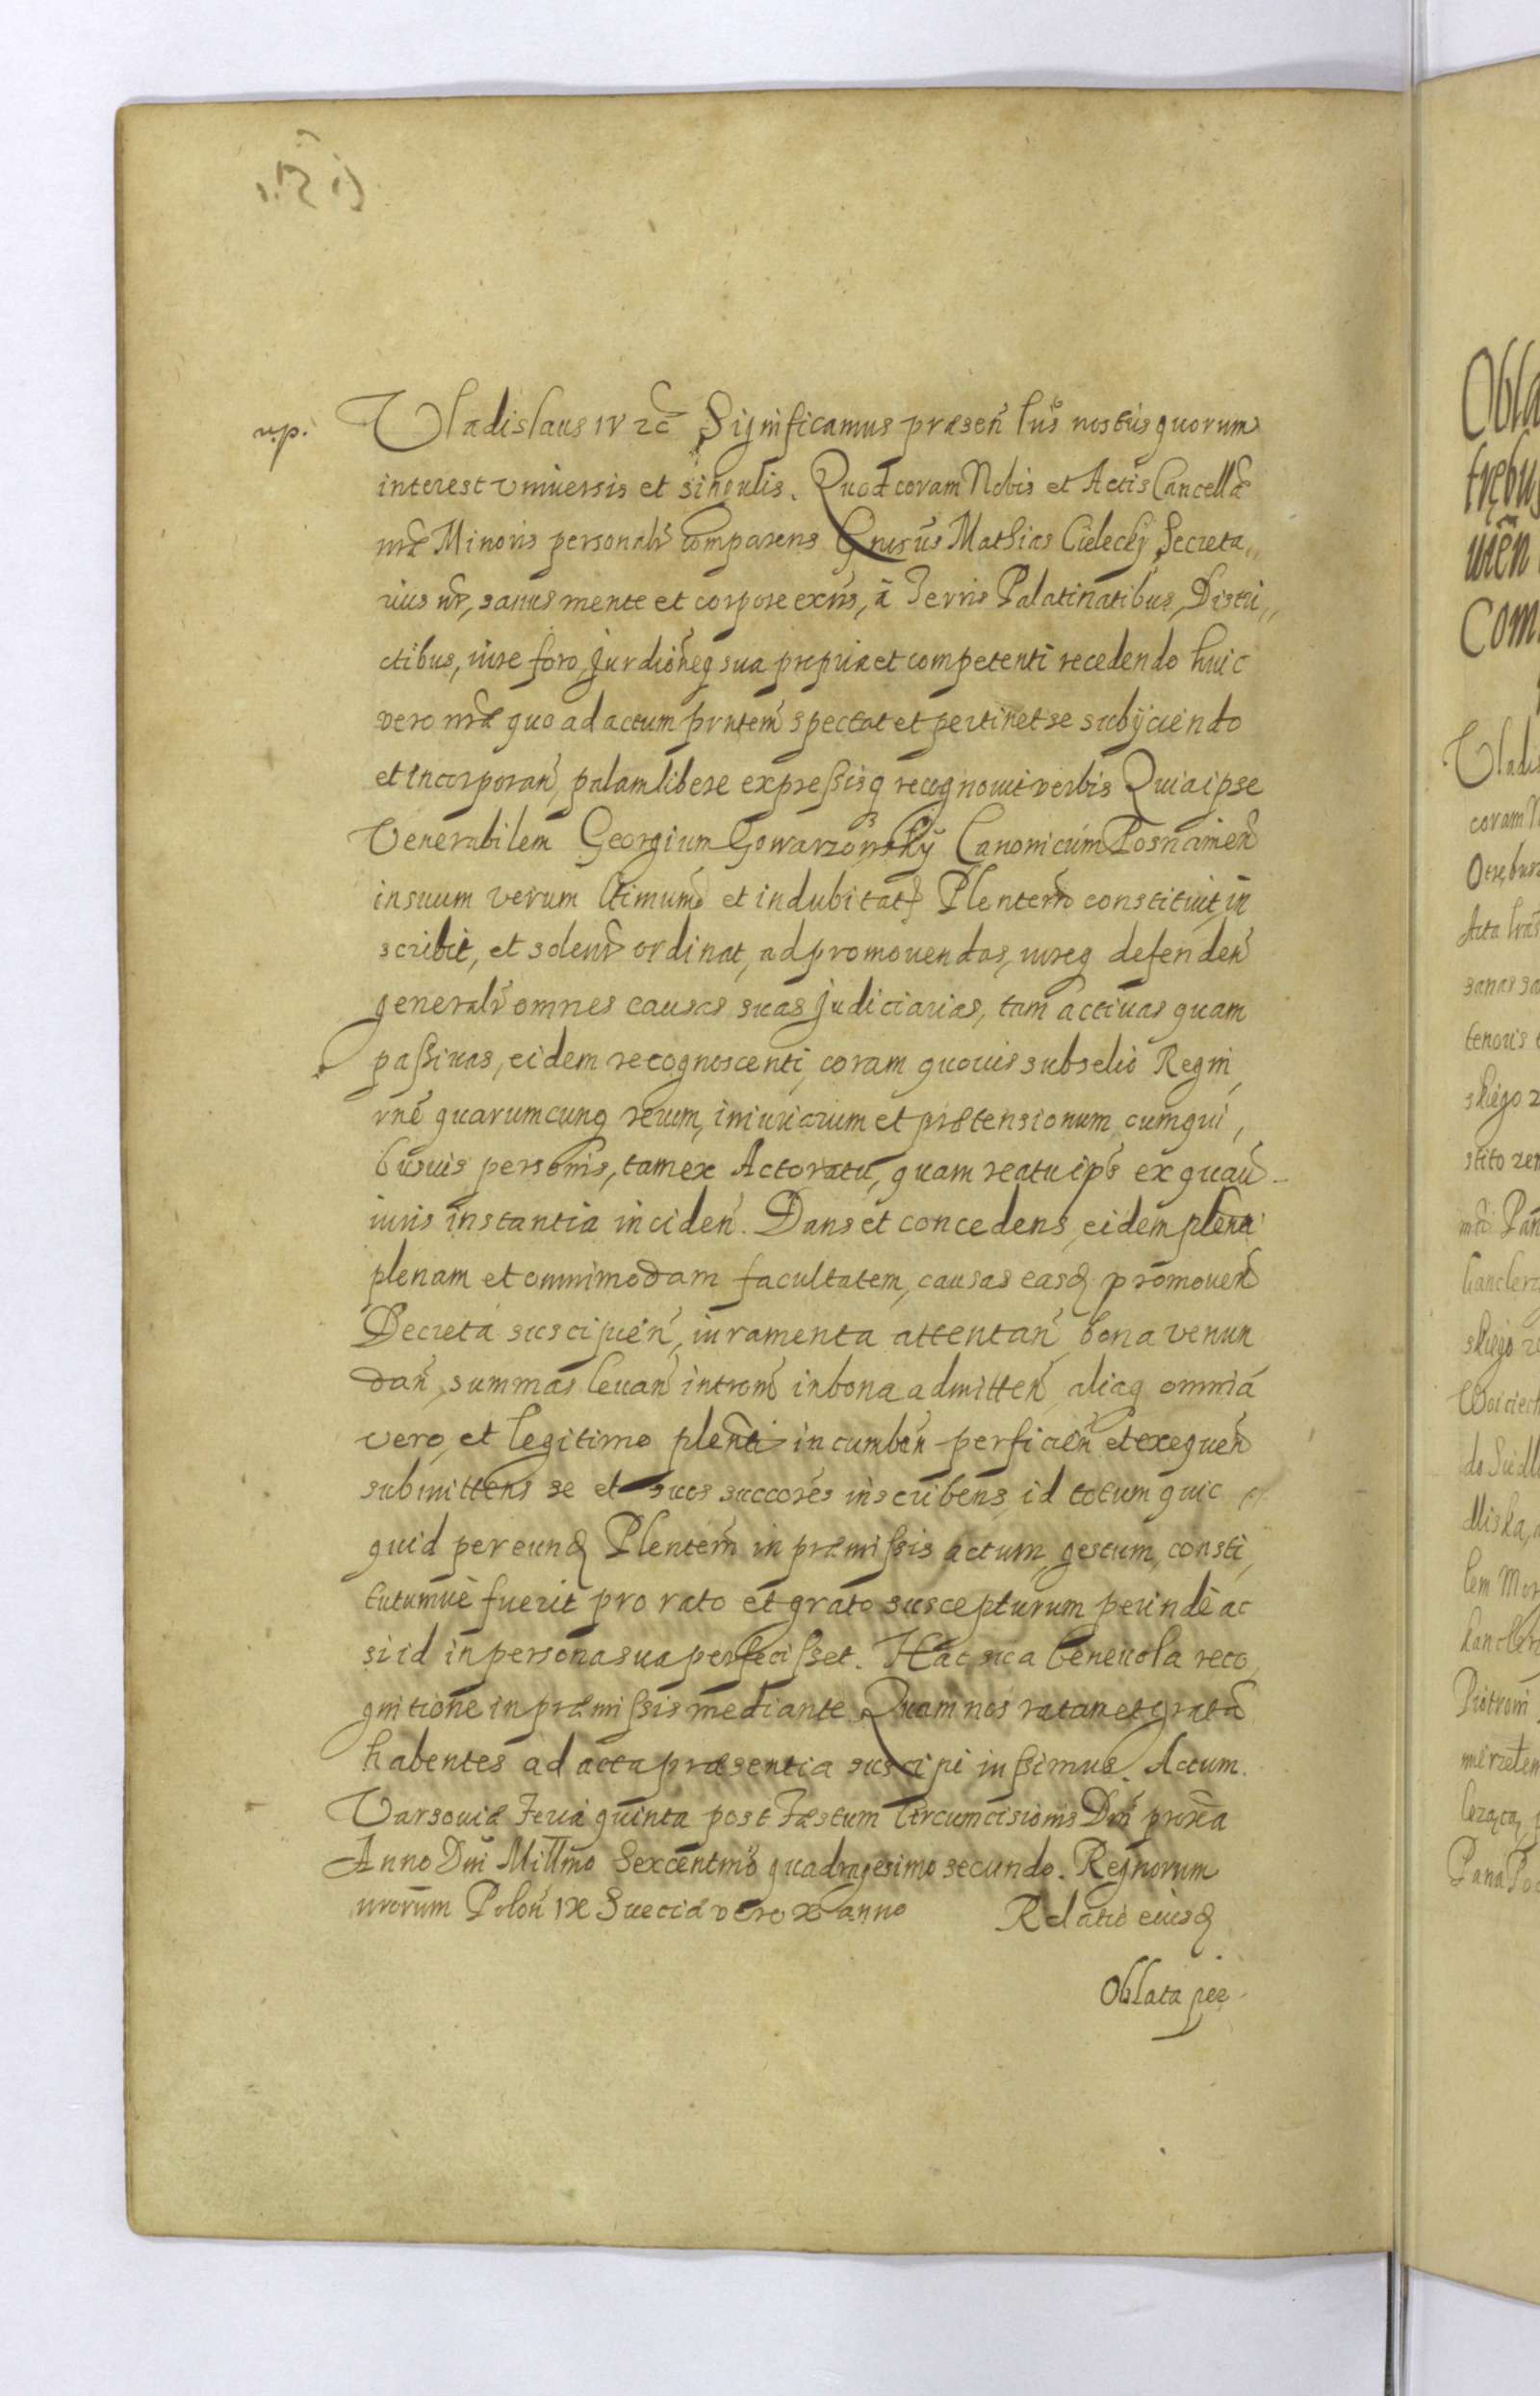 n.p.
Vladislaus IV zc Significamus præsen̄ lrīs nostris quorum
interest vniuersis et singulis. Quod coram Nobis et Actis Cancellæ
nræ Minoris personalr̄ comparens Gnrsus Mathias Cielecky Secreta,,
rius nr̄, sanus mente et corpore exn̄s, à Terris Palatinatibus, Distri,,
ctibus, iure foro Jurdiōneq sua propria et competenti recedendo huic
vero nræ quo ad actum prntem spectat et pertinet se subÿciendo
et incorporan̄, palam libere expreßisq recognouit verbis Quia ipse
Venerabilem Georgium Gowarzowsky Canonicum Posnanien̄
in suum verum ltimum et indubitat Plentem constituit, in
scribit, et solenr̄ ordinat, ad promouendas, iureq defenden̄
generalr̄ omnes causas suas Judiciarias, tam actiuas quam
paßiuas, eidem recognoscenti, coram quouis subselio Regni,
rne quarumcunq rerum, iniuriarum et prætensionum, cum qui,
busuis personis, tam ex Actoratu, quam reatu ips ex quau
iuris instantia inciden̄. Dans et concedens eidem plena
plenam et omnimodam facultatem, causas easq promouen̄
Decreta suscipien̄, iuramenta attentan̄ bona venun
dan̄, summas leuan̄ introm̄ in bona admitten̄, aliaq omnia
vero, et legitimo plenti incumben̄ perficien̄ et exequen̄
submittens se et suos succores inscribens id totum quic
quid per eund Plentem in præmißis actum, gestum, consti,
tutumuè fuerit pro rato et grato suscepturum perindè ac
si id in persona sua perfecißet. Hac sua beneuola reco,
gnitione in præmißis mediante. Quam nos ratam et gratā
habentes ad acta præsentia suscipi iußimus. Actum.
Varsouiæ Feria quinta post Fæstum Circumcisionis Dni proxa
Anno Dni Millmo Sexcentmo quadragesimo secundo. Regnorum
nrorum Polon̄ IX Sueciæ vero X anno Relatio eiusd
Oblata per